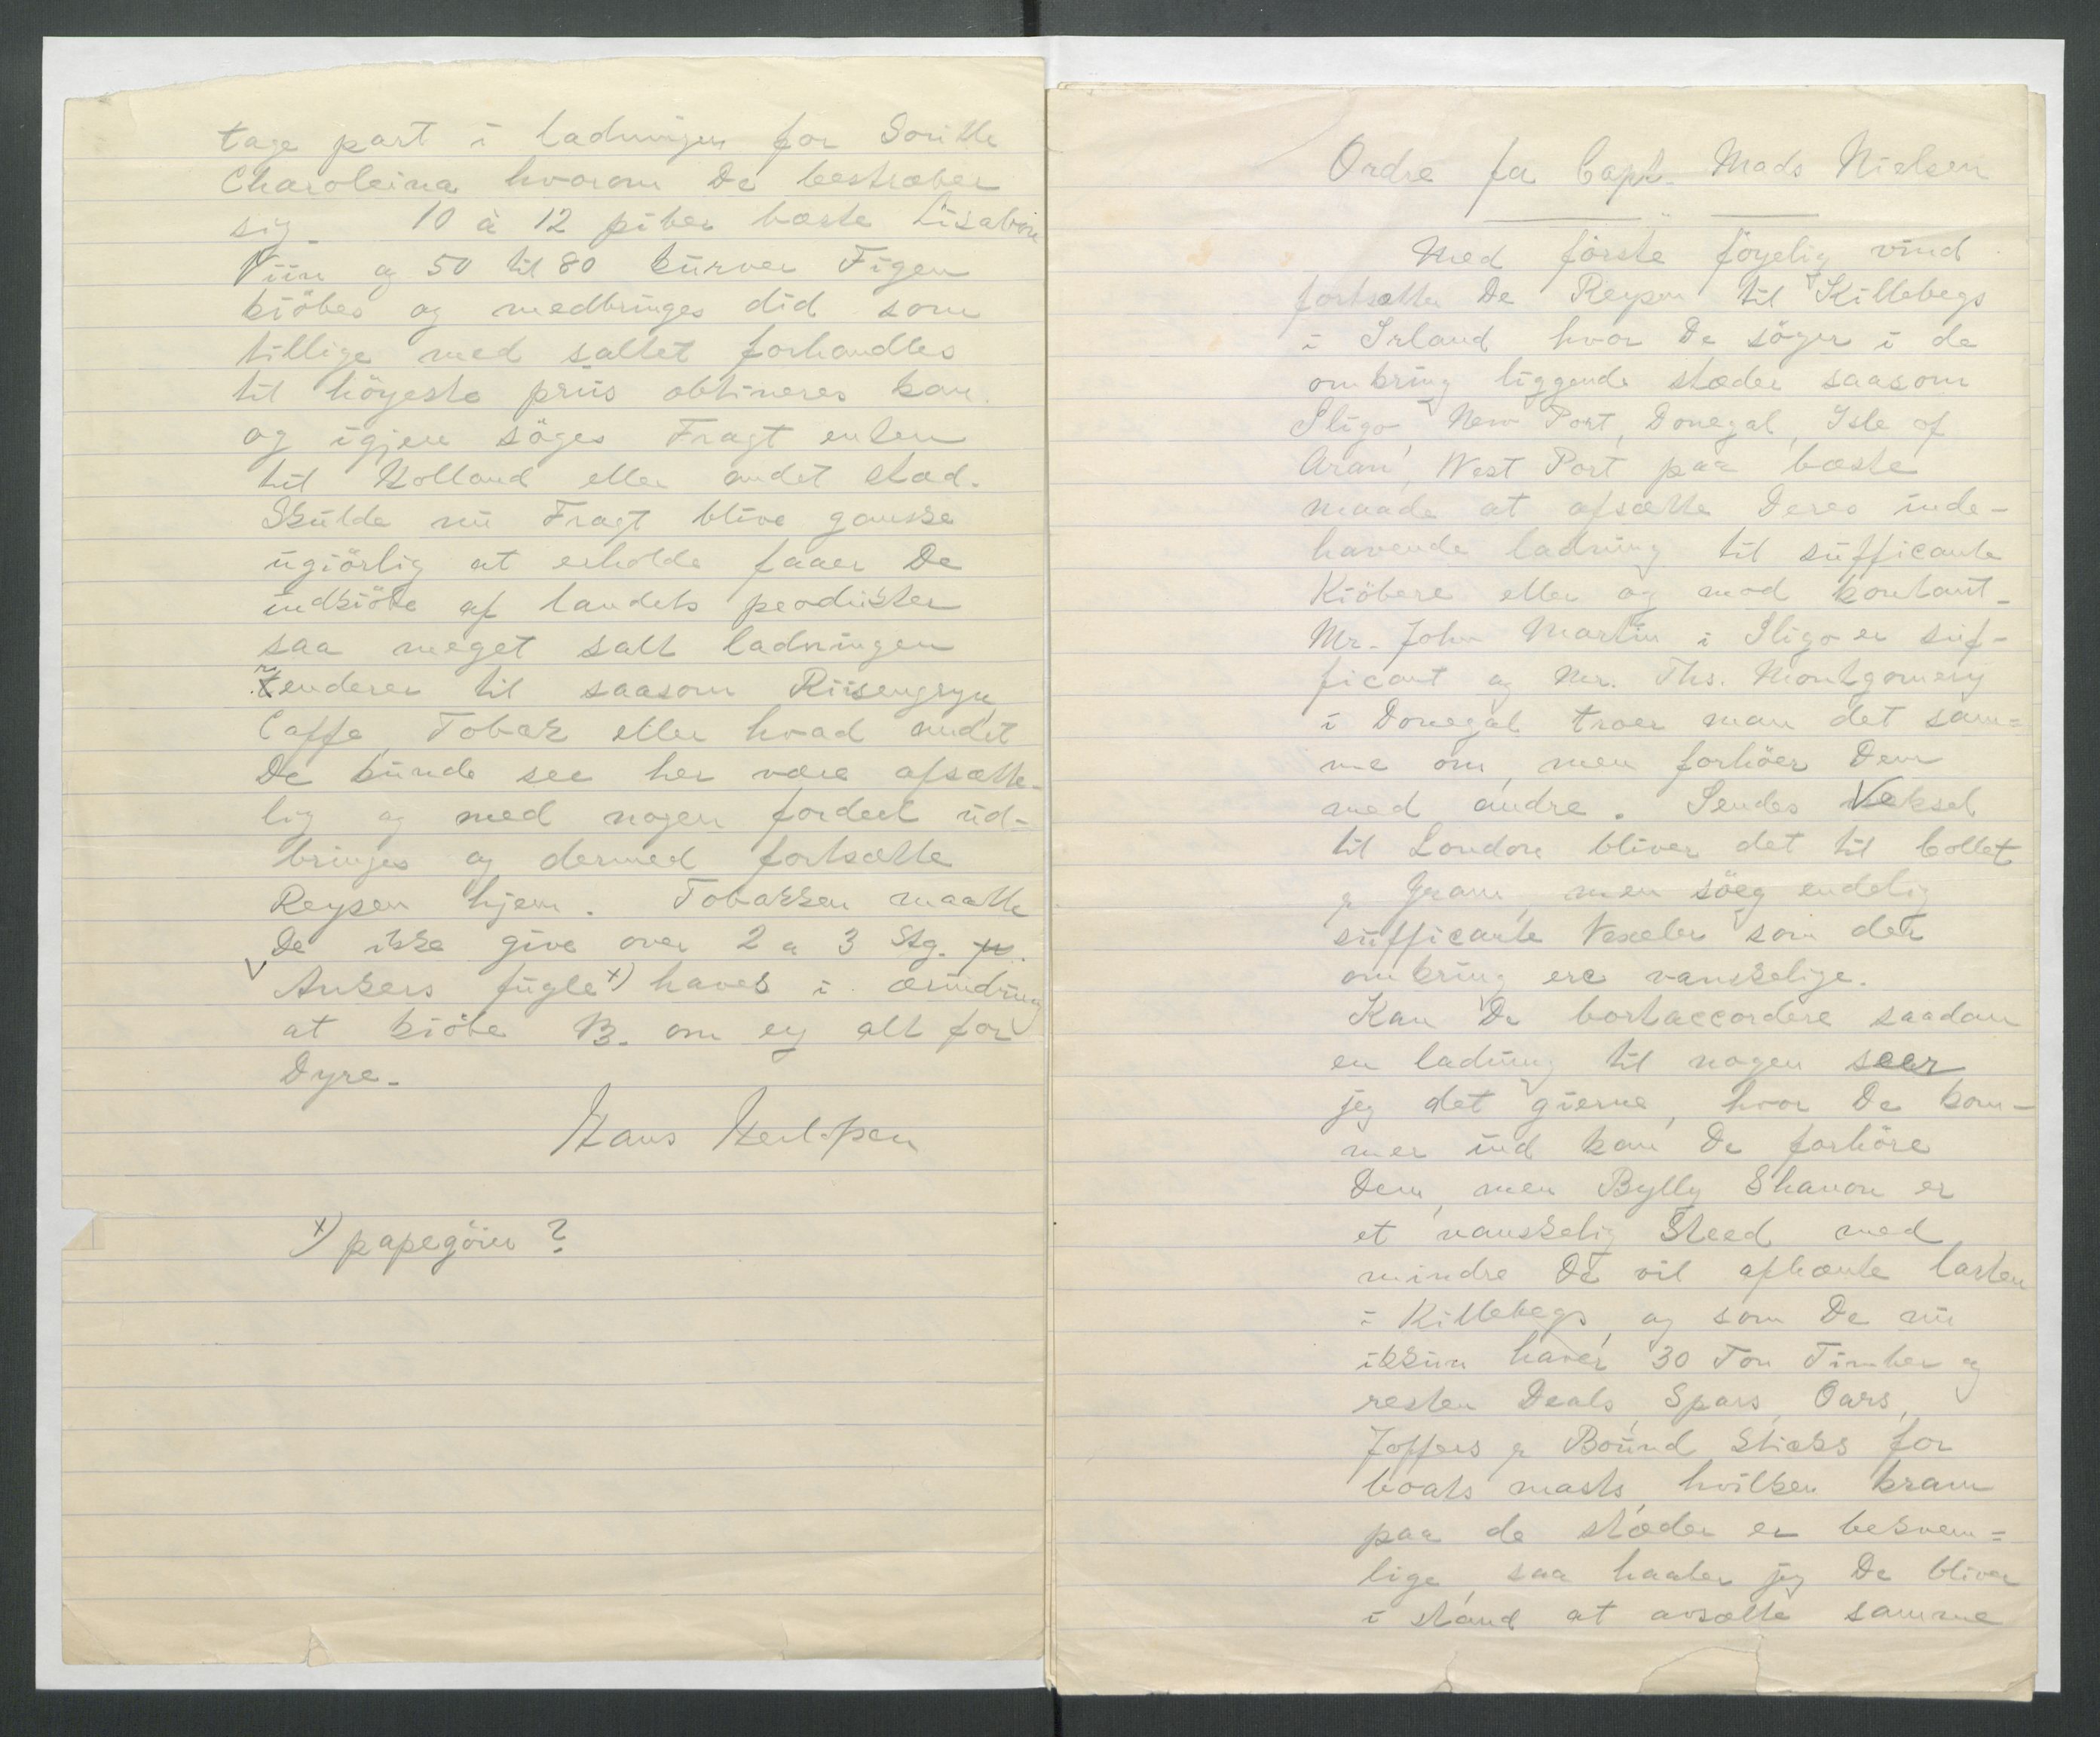 tage part i ladningen for Soritte
Charoleina hvorom De bestræber
sig. 10 à 12 piber bæste Lisabon
Viin og 50 til 80 kurver Figen
kiöbes og medbringes did som
tillige med saltet forhandles
til höyeste priis obtineres kan.
og igjen söges Fragt enten
til Holland eller andet stad.
Skulde nu Fragt blive ganske
ugiörlig at erholde faaer De
indkiöbe af landets producter
saa meget salt ladningen
renderer til saasom Riisengryn,
Caffe, Tobak eller hvad andet
De kunde see her være afsætte-
lig og med nogen fordeel ud-
bringes og dermed fortsætte
Reysen hjem. Tobakken maatte
De ikke give over 2 a 3 Stg. p.
Ankers fugle x) haves i ærindring
at kiöbe B. om ey alt for
Dyre.
Hans Herlopsen
x) papegöier?
Ordre for Capt. Mads Nielsen
Med förste föyelig vind
fortsætter De Reysen til Killebegs
i Irland hvor De söger i de
omkring liggende stæder saasom
Sligo, New Port, Donegal, Isle of
Aran, West Port paa bæste
maade at afsætte Deres inde-
havende ladning til sufficante
Kiöbere eller og mod kontant.
Mr. John Martin i Sligo er suf-
ficant og Mr. Ths. Montgomery
i Donegal troer man det sam=
me om, men forhöer Dem
med andre. Sendes Veksel
til London bliver det til Collet
& Gram, men söeg endelig
sufficante Vexeler som der
omkring ere vanskelige.
Kan De bortaccordere saadan
en ladning til nogen seer
jeg det gierne, hvor De kom-
mer ind kan De forhöre
Dem, men Bylly Shanon er
et vanskelig Steed med
mindre De vil afhænte lasten
i Killebegs, og som De nu
ikkun haver 30 Ton Timber og
resten Deals, Spars, Oars,
Joffers & Bound Sticks for
boats masts, hvilken kram
paa de stæder er bekvem=
lige, saa haaber jeg De bliver
i stand at avsætte samme